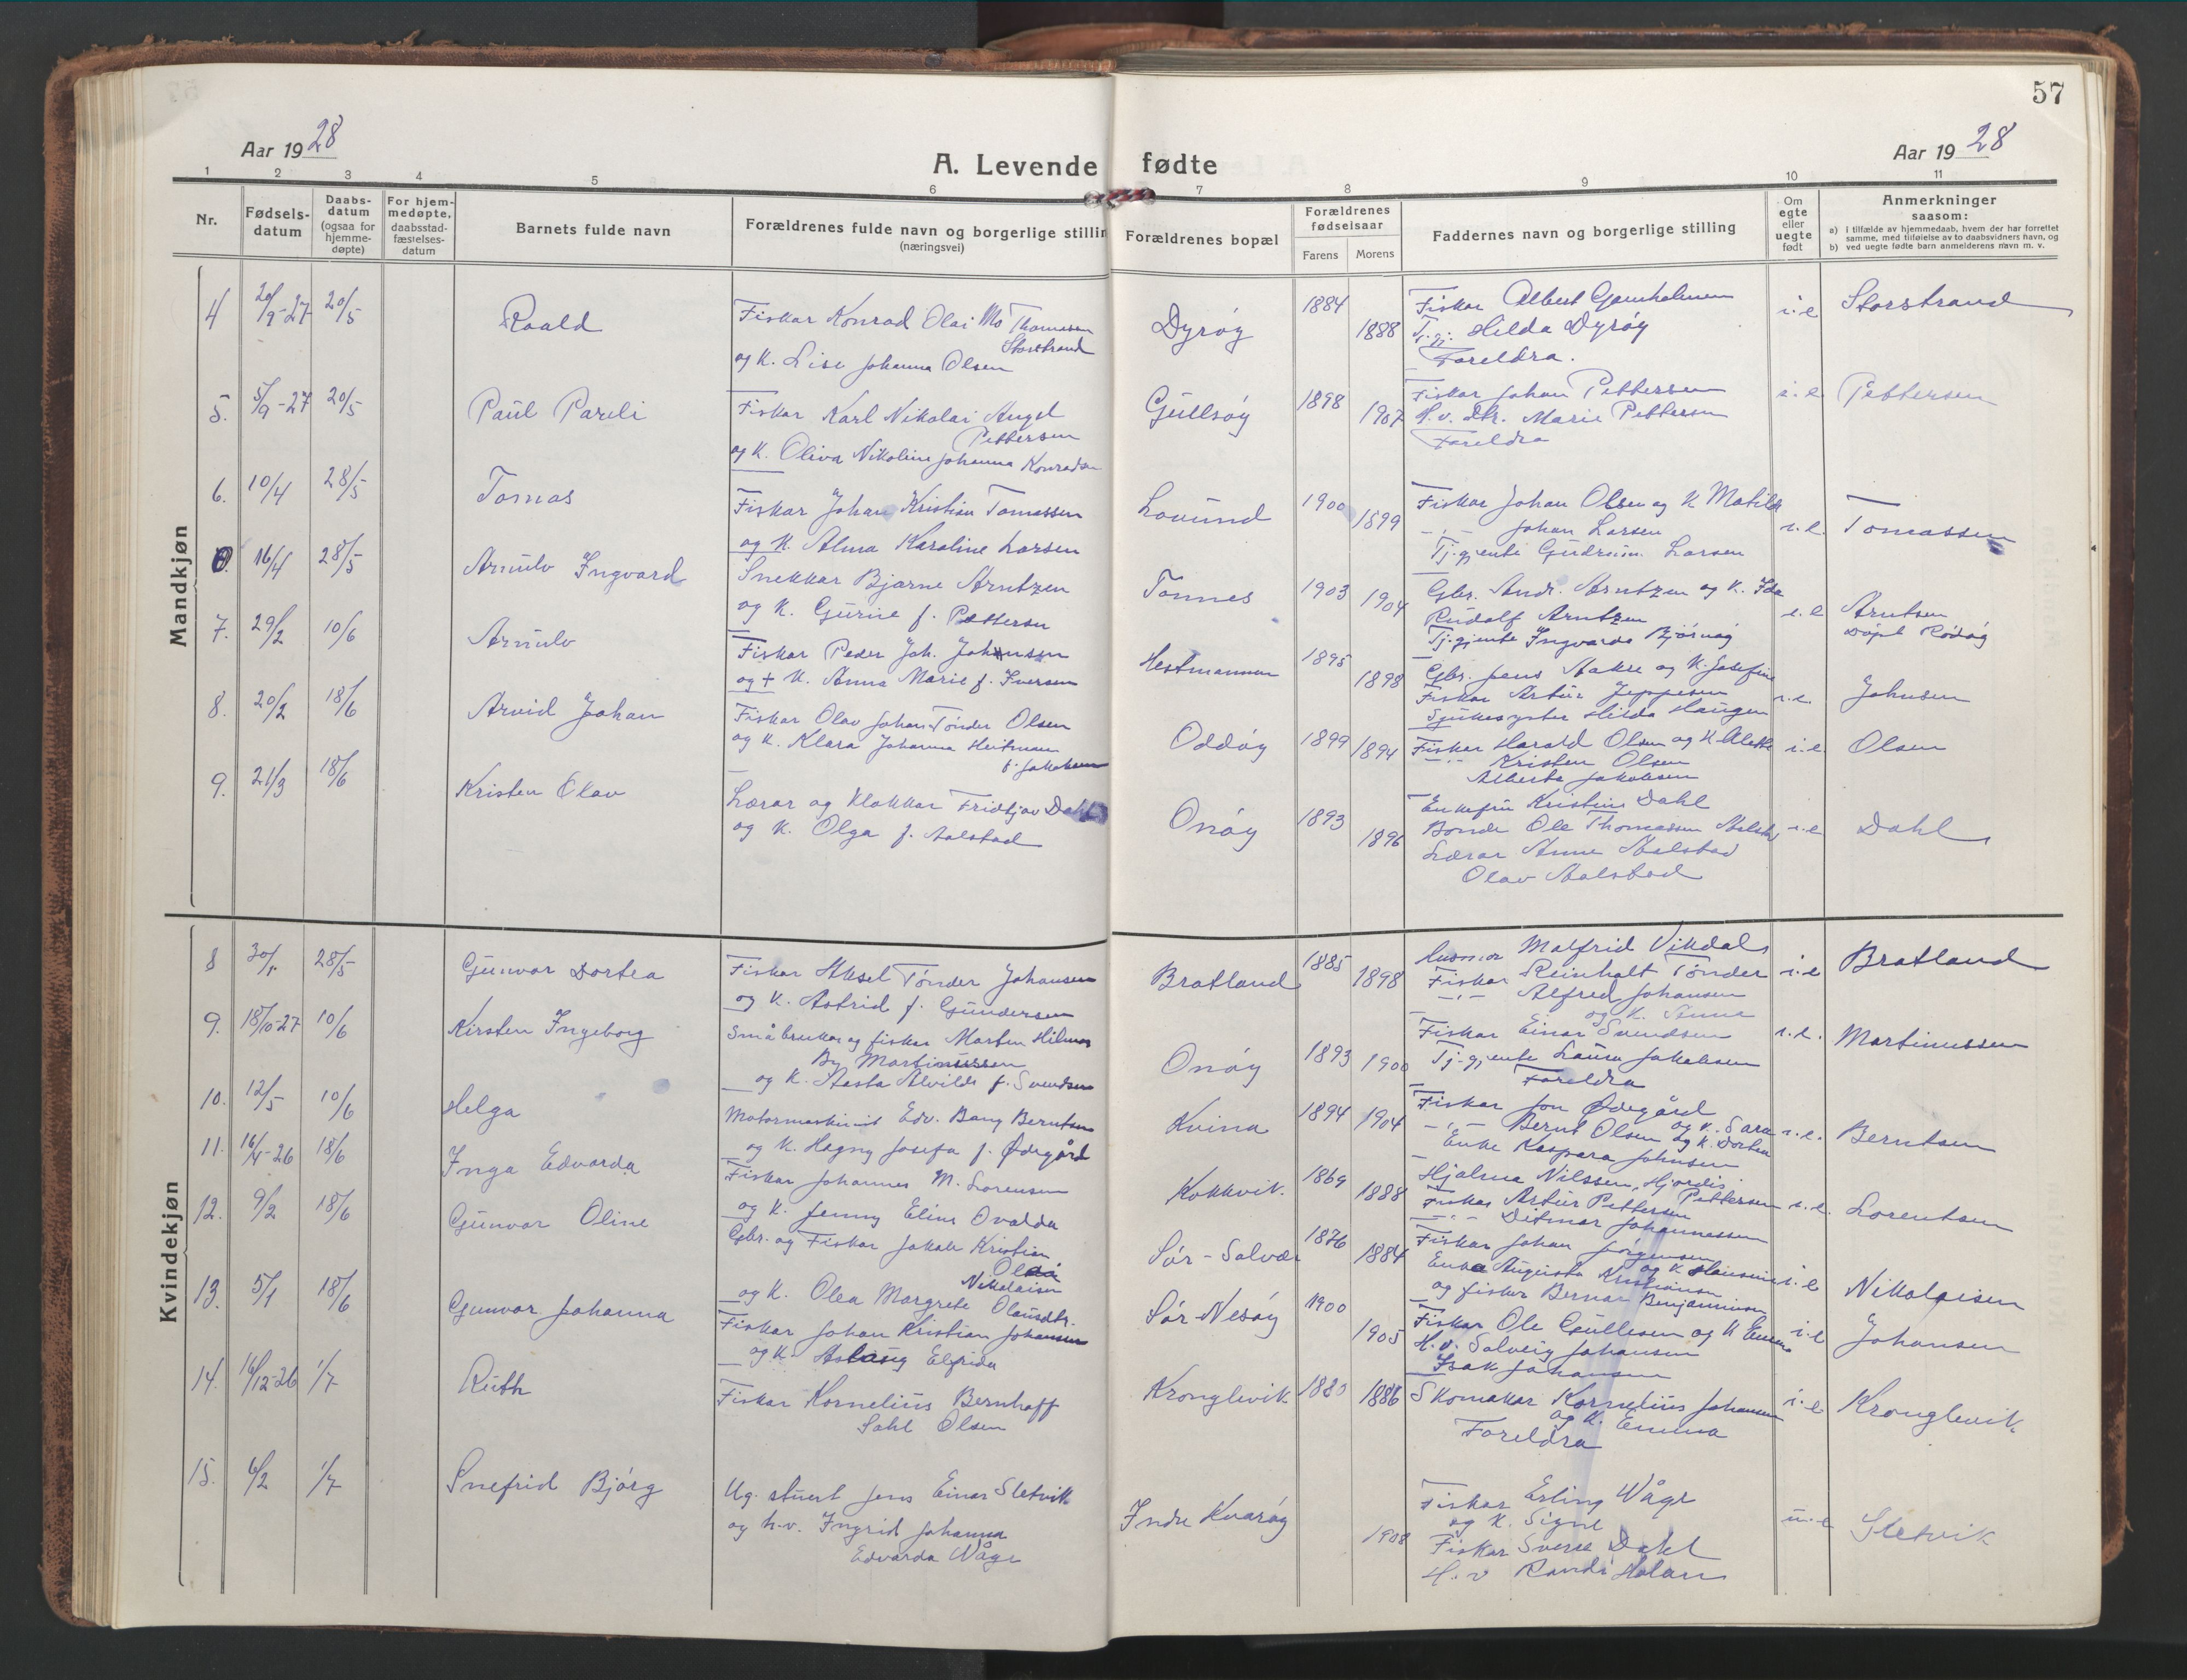 57
Aar 1928
A. Levende fødte
Aar 1928
1 2 3 4 5 6 7 8 9 10 11
Nr.
Fødsels-
datum
Daabs-
datum
(ogsaa for
hjemme-
døpte)
For hjem-
medøpte,
daabsstad-
fæstelses-
datum
Barnets fulde navn
Forældrenes fulde navn og borgerlige stillin
(næringsvei)
Forældrenes bopæl
Forældrenes
fødselsaar
Farens Morens
Faddernes navn og borgerlige stilling
Om
egte
eller
uegte
født
Anmerkninger
saasom:
a) i tilfælde av hjemmedaab, hvem der har forrettet
samme, med tilføielse av to daabsvidners navn, og
b) ved uegte fødte barn anmelderens navn m. v.
Mandkjøn
4 20/9-27 20/5 Roald
Fiskar Konrad Olai Mo Thomasen
Storstrand
og K. Lise Johanna Olsen
Dyrøy 1884 1888
Fiskar Albert
Tj.gj. Hilda Dyrøy
Foreldra.
i.e Storstrand
5. 5/9-27 20/5 Paul Pareli
Fiskar Karl Nikolai Angel
Pettersen
og K. Oliva Nikoline Johanna Konradsen
Gullsøy 1898 1907
Fiskar Johan Pettersen
H.v. dtr. Marie Pettersen
Foreldra
i.e Pettersen
6. 10/4 28/5 Tomas
Fiskar Johan Kristian Tomassen
og K. Alma Karoline Larsen
Lovund 1900 1899
Fiskar Johan Olsen og K Matilde
-,,- Johan Larsen
Tj.gjente Gudrun Larsen
i.e. Tomassen
0. 16/4 28/5 Arnulv Ingvard
Snekkar Bjarne Arntzen
og K. Gurine f. Pettersen
Tonnes 1903 1904
Gbr. Andr. Arntzen og K. Ida
Rudolf Arntzen
Tj.gjente Ingvarda Bjørnøy
i.e Arntsen
Døpt Rødøy
7. 29/2 10/6 Arnulv
Fiskar Peder Joh. Johnsen
og + K. Anna Marie f. Iversen
Hestmannen 1895 1898
Gbr. Jens Aakre og K. Josefine
Fiskar Artur Jeppesen
Sjukesyster Hilda Haugen
i.e. Johnsen
8. 20/2 18/6 Arvid Johan
Fiskar Olav Johan Tønder Olsen
og K. Klara Johanna Heitman
f. Jakobsen
Oddøy 1899 1894
Fiskar Harald Olsen og K Alette
-,,- Kristen Olsen
Alberte Jakobsen
i.e Olsen
9. 21/3 18/6 Kristen Olav
Lærar og Klokkar Fridtjov Dahl
og K. Olga f. Aalstad
Onøy 1893 1896
Enkefru Kristine Dahl
Bonde Ole Thomassen
Lærar Anne Aalstad
Olav Aalstad
i.e Dahl
Kvindekjøn
8 30/1 28/5 Gunvor Dortea
Fiskar Aksel Tønder Johansen
og K. Astrid f. Gundersen
Bratland 1885 1898
Husmor Malfrid Vikdal
Fiskar Reinhalt Tønder
-,,- Alfred Johansen
og K. Anna
i.e Bratland
9. 18/10-27 10/6 Kirsten Ingeborg
Småbrukar og fiskar Morten Hilmar
By Martinussen
og K. Aasta Alvilde f. Svendsen
Onøy 1893 1900
Fiskar Einar Svendsen
Tj.gjente Laura Jakobsen
Foreldra
i.e. Martinussen
10. 12/5 10/6 Helga
Motormaskinist Edv. Bang Berntsen
og K. Hagny Josefa f. Ødegård
Kvina 1894 1904
Fiskar Jon Ødegård
og K. Sara
-,,- Bernt Olsen og K. Dortea
Enke Kaspara Johnsen
i.e. Berntsen
11. 16/4-26 18/6 Inga Edvarda
Fiskar Johannes M. Lorensen
og K. Jenny Eline Ovalda
Kokkvik 1869 1888
Hjalma Nilssen, Hjørdis Pettersen
Fiskar Artur Pettersen
-,,- Ditmar Johannessen
i.e. Lorentsen
12. 9/2 18/6 Gunvor Oline
Gbr. og Fiskar Jakob Kristian
Olai
Nikolaisen
og K. Olea Margrete Olausdtr.
Sør-Solvær 1876 1884
Fiskar Johan Jørgensen
og K Hansine
Enke Augusta Kristiansen
og fiskar Bernar Benjaminsen
i.e Nikolaisen
13. 5/1 18/6 Gunvor Johanna
Fiskar Johan Kristian Johansen
og K. Aslaug Elfrida
Sør Nesøy 1900 1905
Fiskar Ole Gullesen og K Emma
H.v. Solveig Johansen
Isak Johansen
i.e Johansen
14. 16/12-26 1/7 Ruth
Fiskar Kornelius Bernhoff
Sahl Olsen
Kronglevik 1880 1886
Skomakar Kornelius Johansen
og K. Emma
Foreldra
i.e Kronglevik
15. 6/2 1/7 Snefrid Bjørg
Ug. stuert Jens Einar Sletvik
og h.v. Ingrid Johanna
Edvarda Våge
Indre Kvarøy 1908
Fiskar Erling Våge
og K. Signe
Fiskar Sverre Dahl
H.v Randi Holan
u.e Sletvik